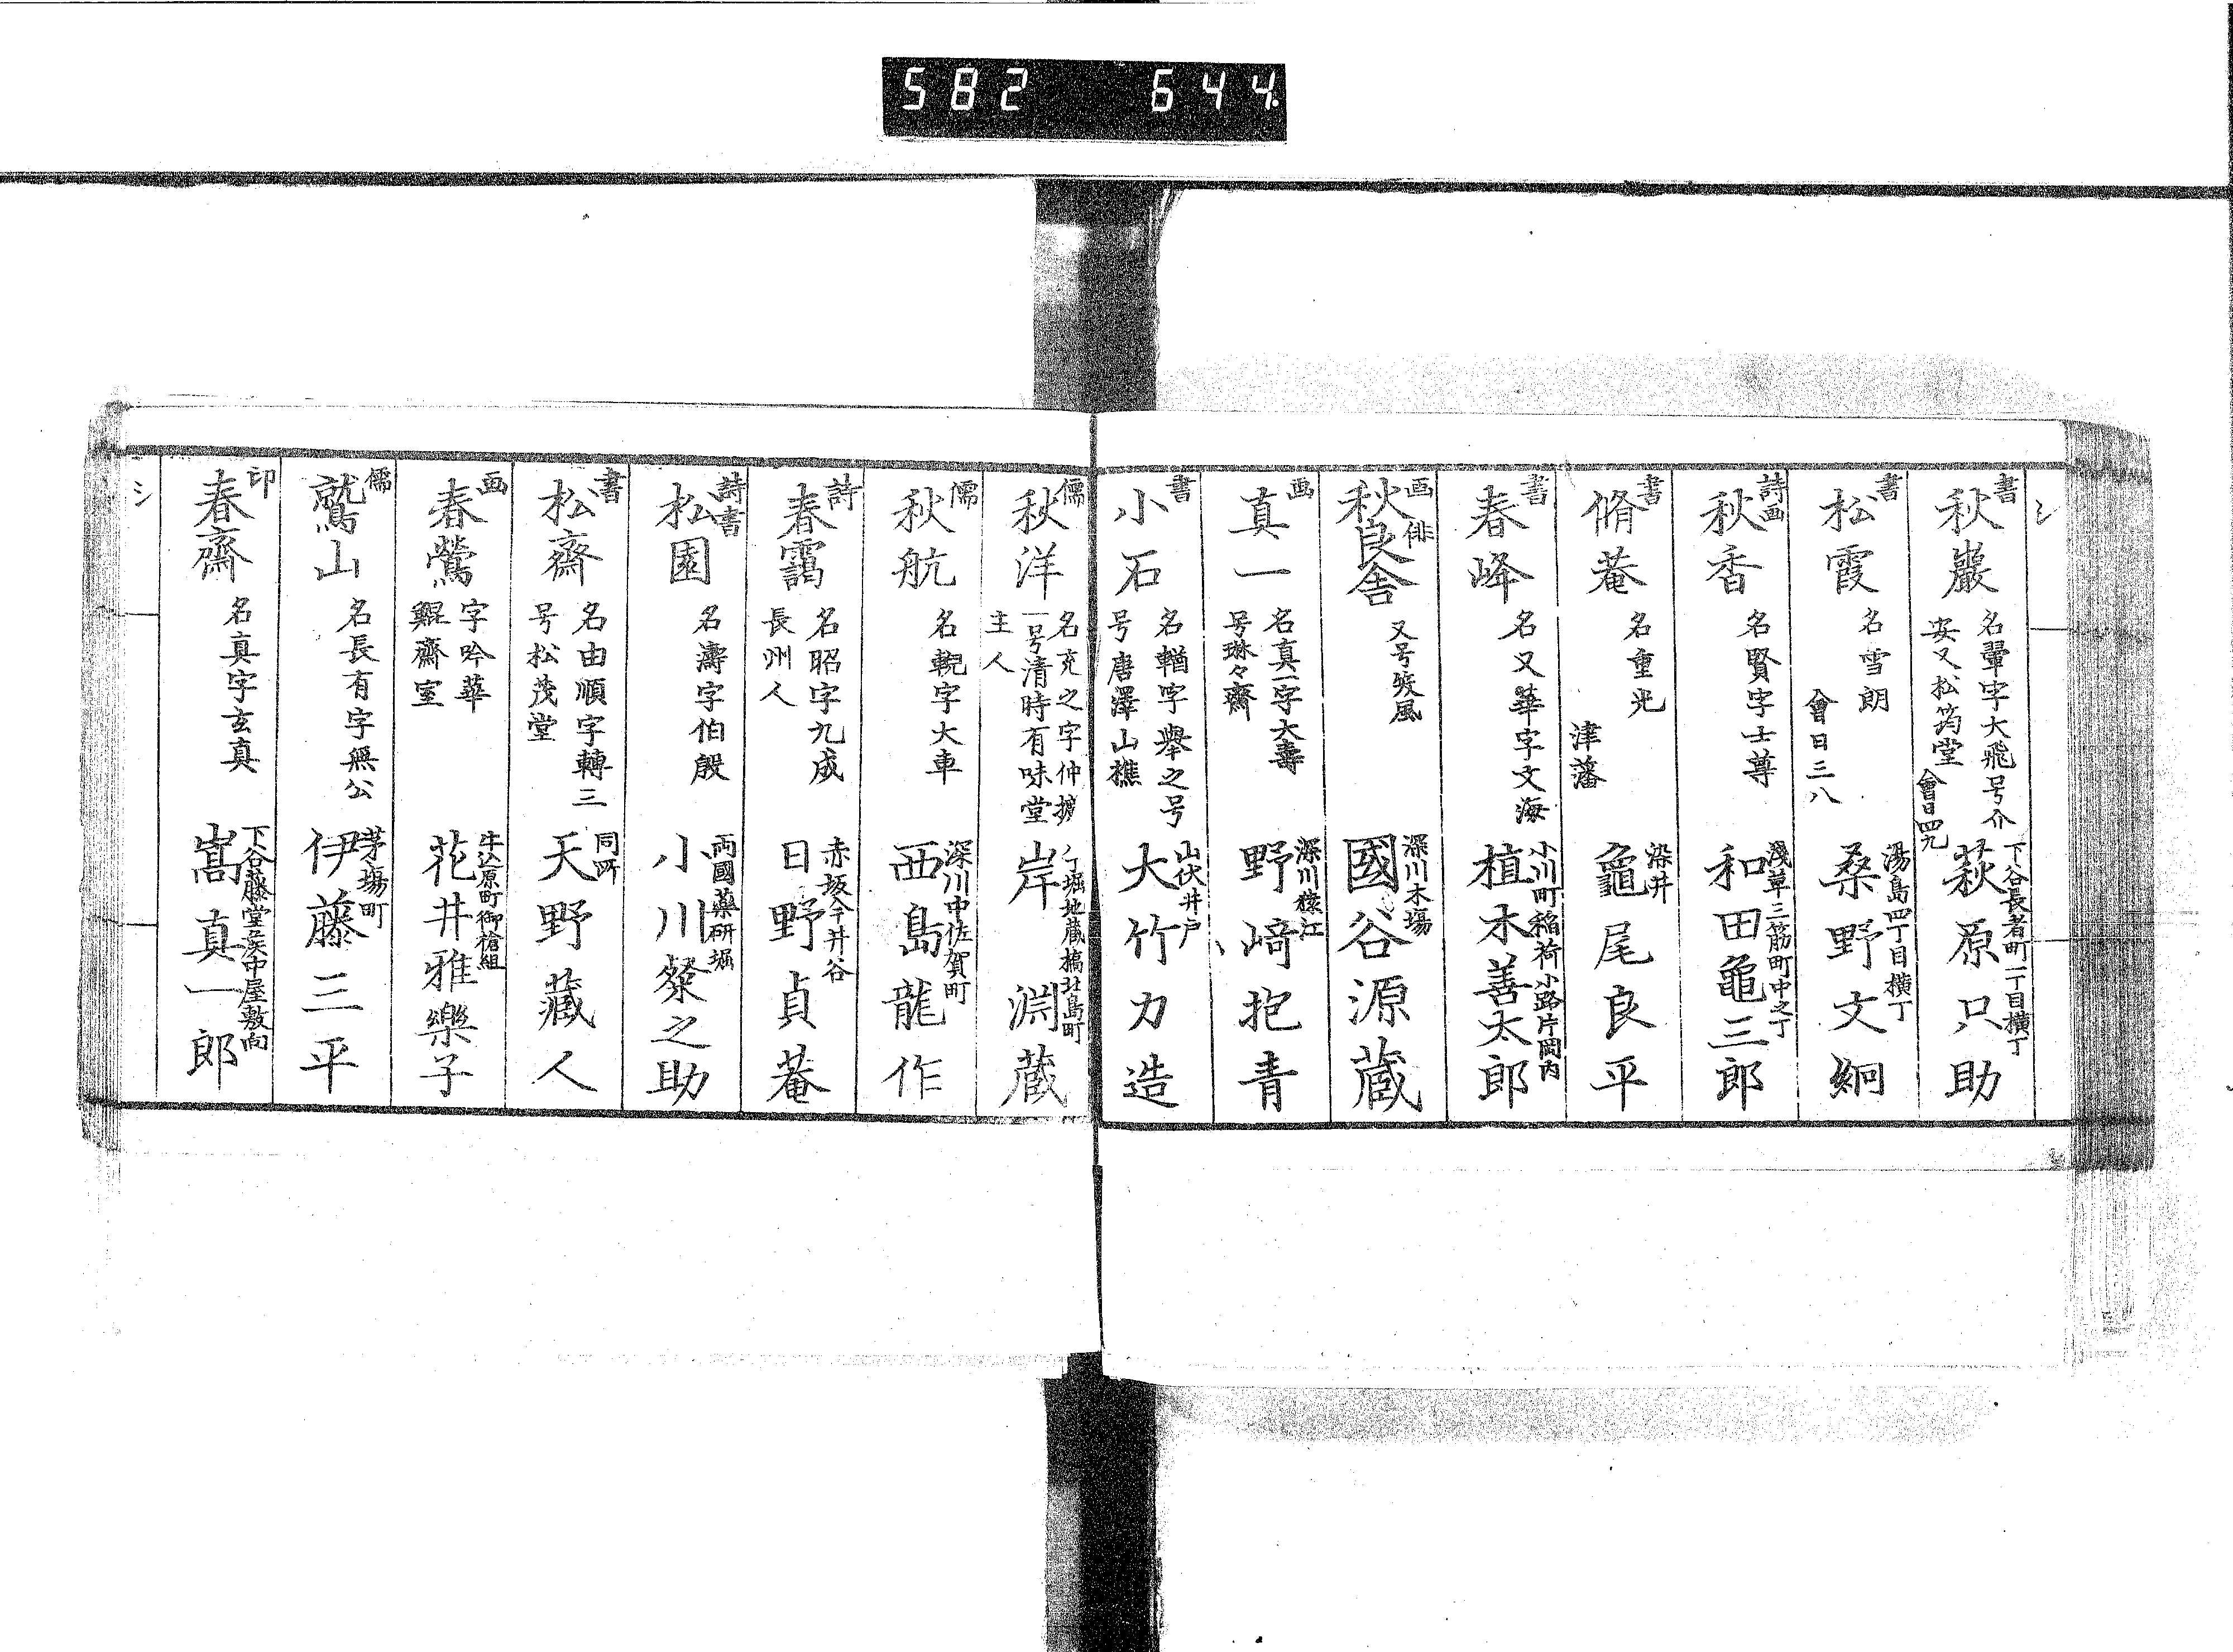 582 644.
シ
書
秋巖
名翬字大飛号介
安又松筠堂
會日四九
下谷長者町一丁目横丁
萩原只助
書
松霞
名雪朗
會日三八
湯島四丁目横丁
桑野文絅
詩画
秋香
名賢字士尊
淺草三筋町中之丁
和田龜三郎
書
脩菴
名重光
津藩
染井
龜尾良平
書
春峰
名又華字文海
小川町稲荷小路片岡内
植木善太郎
画
俳
秋良舎
又号皎風
深川木場
國谷源蔵
画
真一
名真一字大壽
号琳々齋
深川猿江
野﨑抱青
書
小石
名輶字舉之号
号唐澤山樵
山伏井戸
大竹力造
儒
秋洋
名充之字仲擴
一号清時有味堂
主人
八丁堀地蔵橋北島町
岸淵蔵
儒
秋航
名輗字大車
深川中佐賀町
西島龍作
詩
春靄
名昭字九成
長州人
赤坂今井谷
日野貞菴
詩書
松園
名濤字伯殷
両國藥研堀
小川粲之助
書
松齋
名由順字轉三
号松茂堂
同所
天野藏人
画
春鶯
字吟華
鯤齋室
牛込原町御槍組
花井雅樂子
儒
鷲山
名長有字無公
茅場町
伊藤三平
印
春齋
名真字玄真
下谷藤堂矦中屋敷向
嵩真一郎
シ